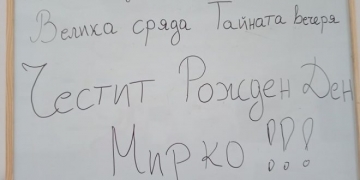 Велика сряда Тайната вечеря
Честит Рожден Ден
Мирко !!!